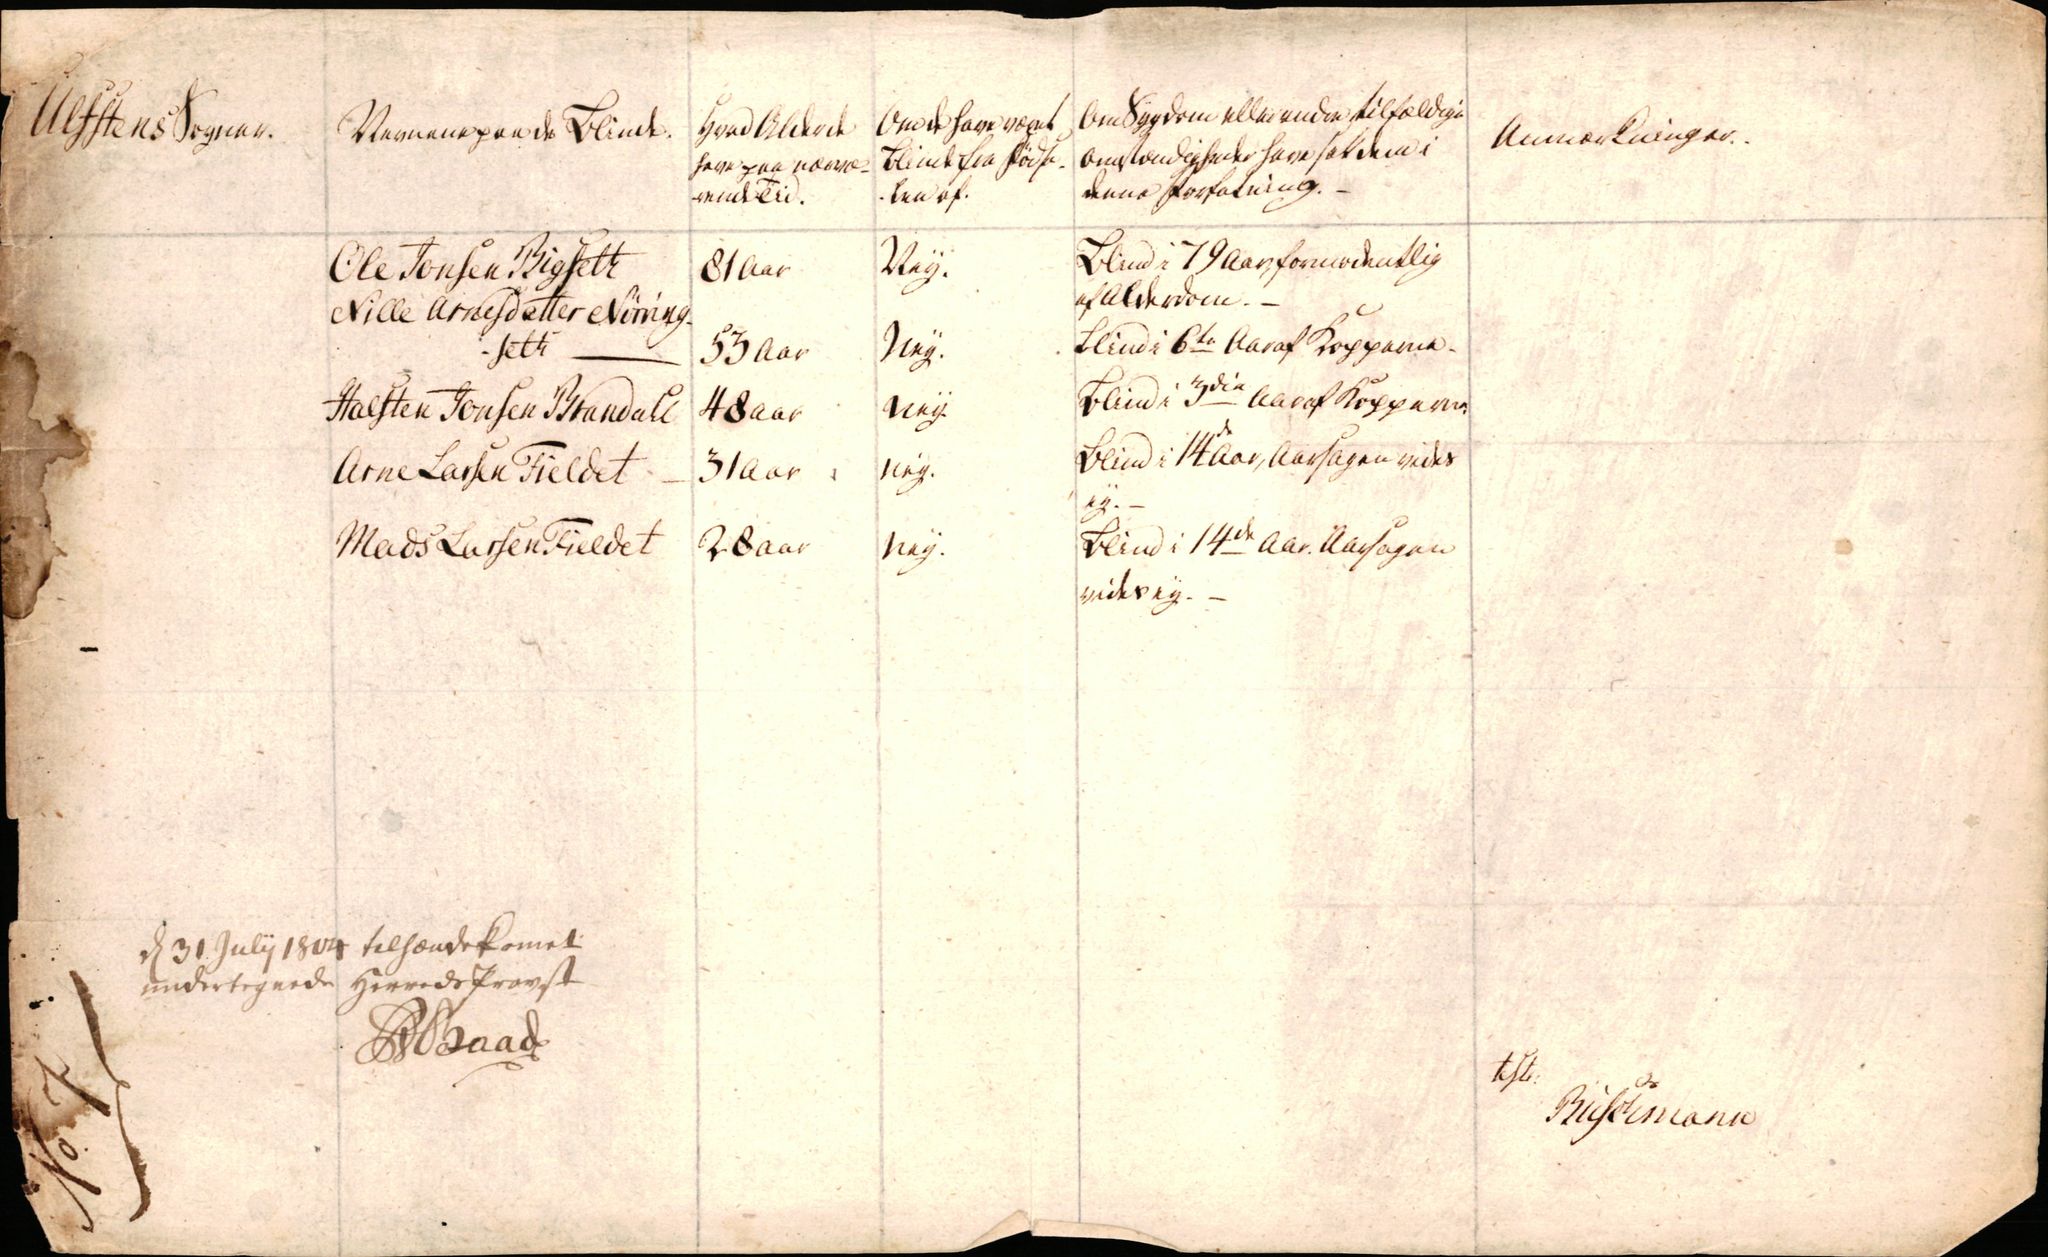 Ulfstens Sogner.
Navnene paa de Blinde.
Hvad Alder de
have paa nærvæ-
rende Tid.
Om de have været
Blinde fra Födse-
len af.
Om Sygdom eller andre tilfældige
omstændigheder have sat dem i
denne Forfatning. –
Anmærkninger.
Ole Jonsen Bigseth
81 Aar
Ney.
Blind i 79 Aar, formodentlig
af Alderdom. –
Nille Arnesdatter Nöring-
-seth
53 Aar
Ney.
Blind i 6te Aar af Kopperne.
Halsten Jonsen Brandall
48 aar
ney.
Blind i 3die Aar af Kopperne
Arne Larsen Fieldet
31 Aar
ney.
Blind i 14de Aar, Aarsagen vides
ey. –
Mads Larsen Fieldet
28 aar
ney.
Blind i 14de Aar. Aarsagen
vides ey. –
d 31 July 1804 tilhændekomet
undertegnede Herreds Provst
Baade
test:
Buschmann
No. 7